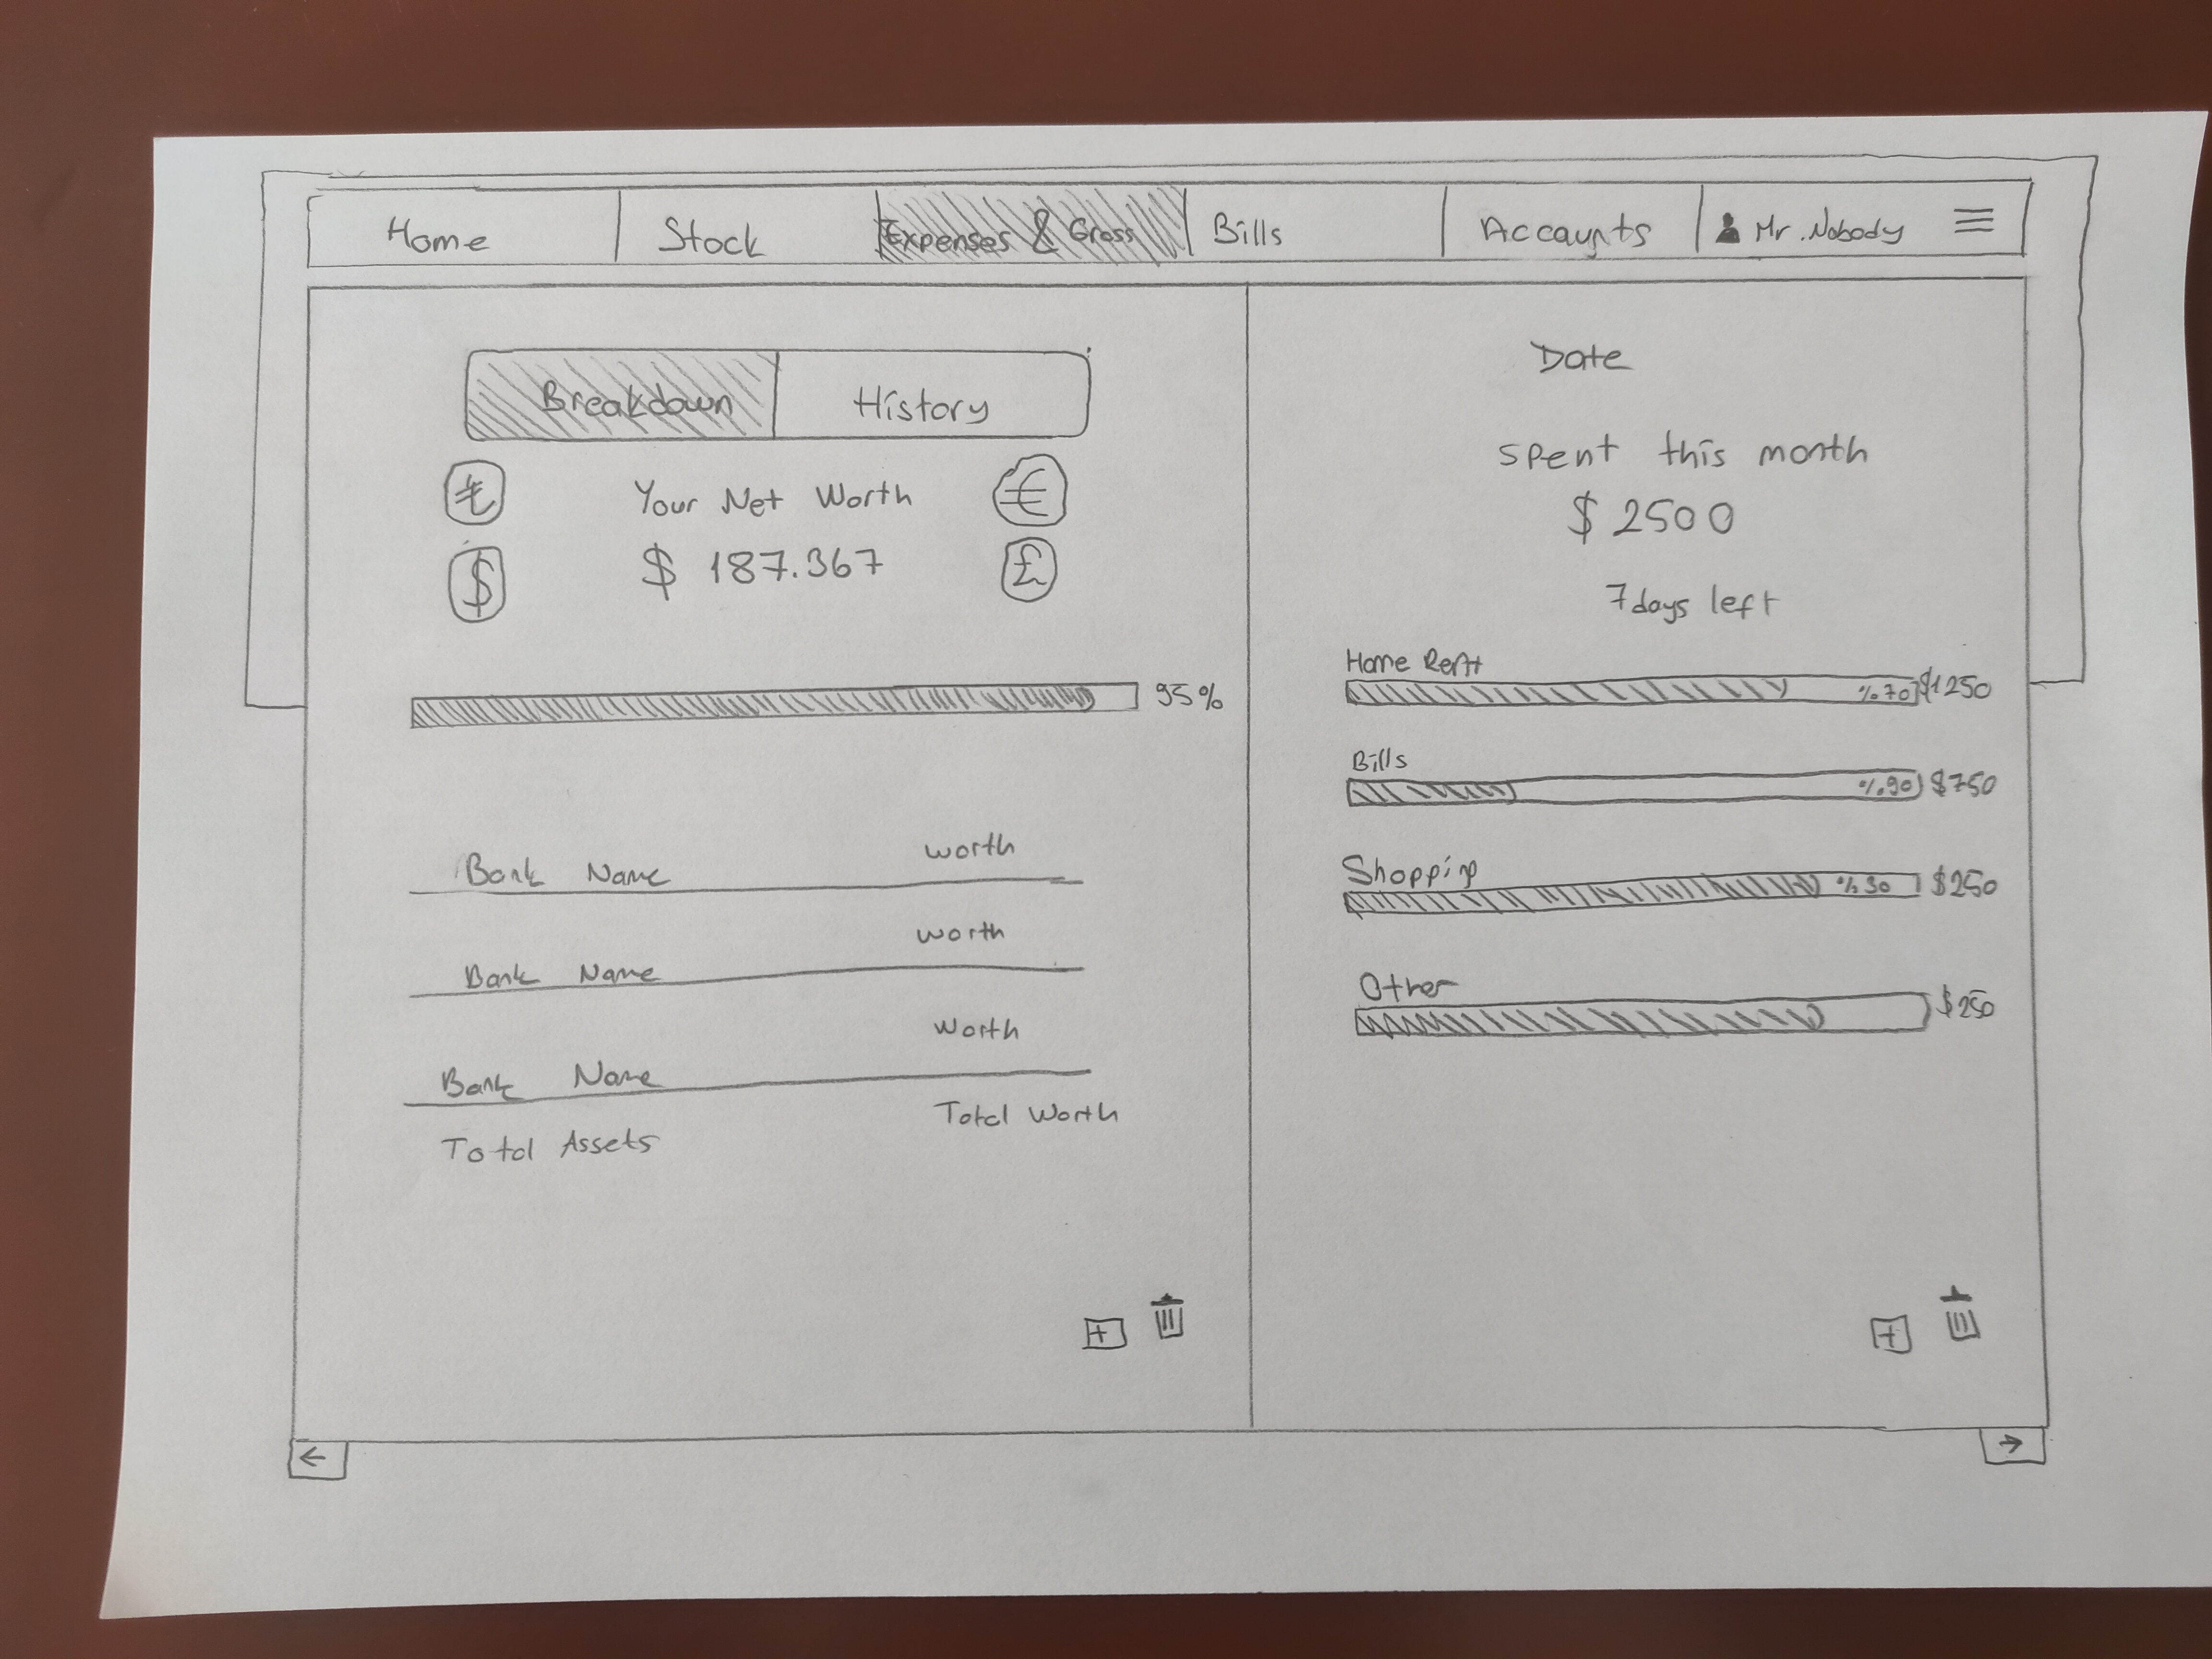 Home Stock Expenses & Gross Bills Accaunts Mr. Nobody
Breakdown History
₺ Your Net Worth €
$ $ 187.367 £
95%
Bank Name worth
Bank Name worth
Bank Name worth
Total Assets Total Worth
Date
spent this month
$ 2500
7 days left
Home Rent
%70 $1250
Bills
%90 $750
Shopping
%30 $250
Other
$250